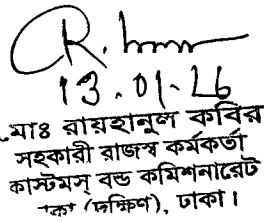 13.01.26
মোঃ রায়হানুল কবির
সহকারী রাজস্ব কর্মকর্তা
কাস্টমস্ বন্ড কমিশনারেট
ঢাকা (দক্ষিণ), ঢাকা।